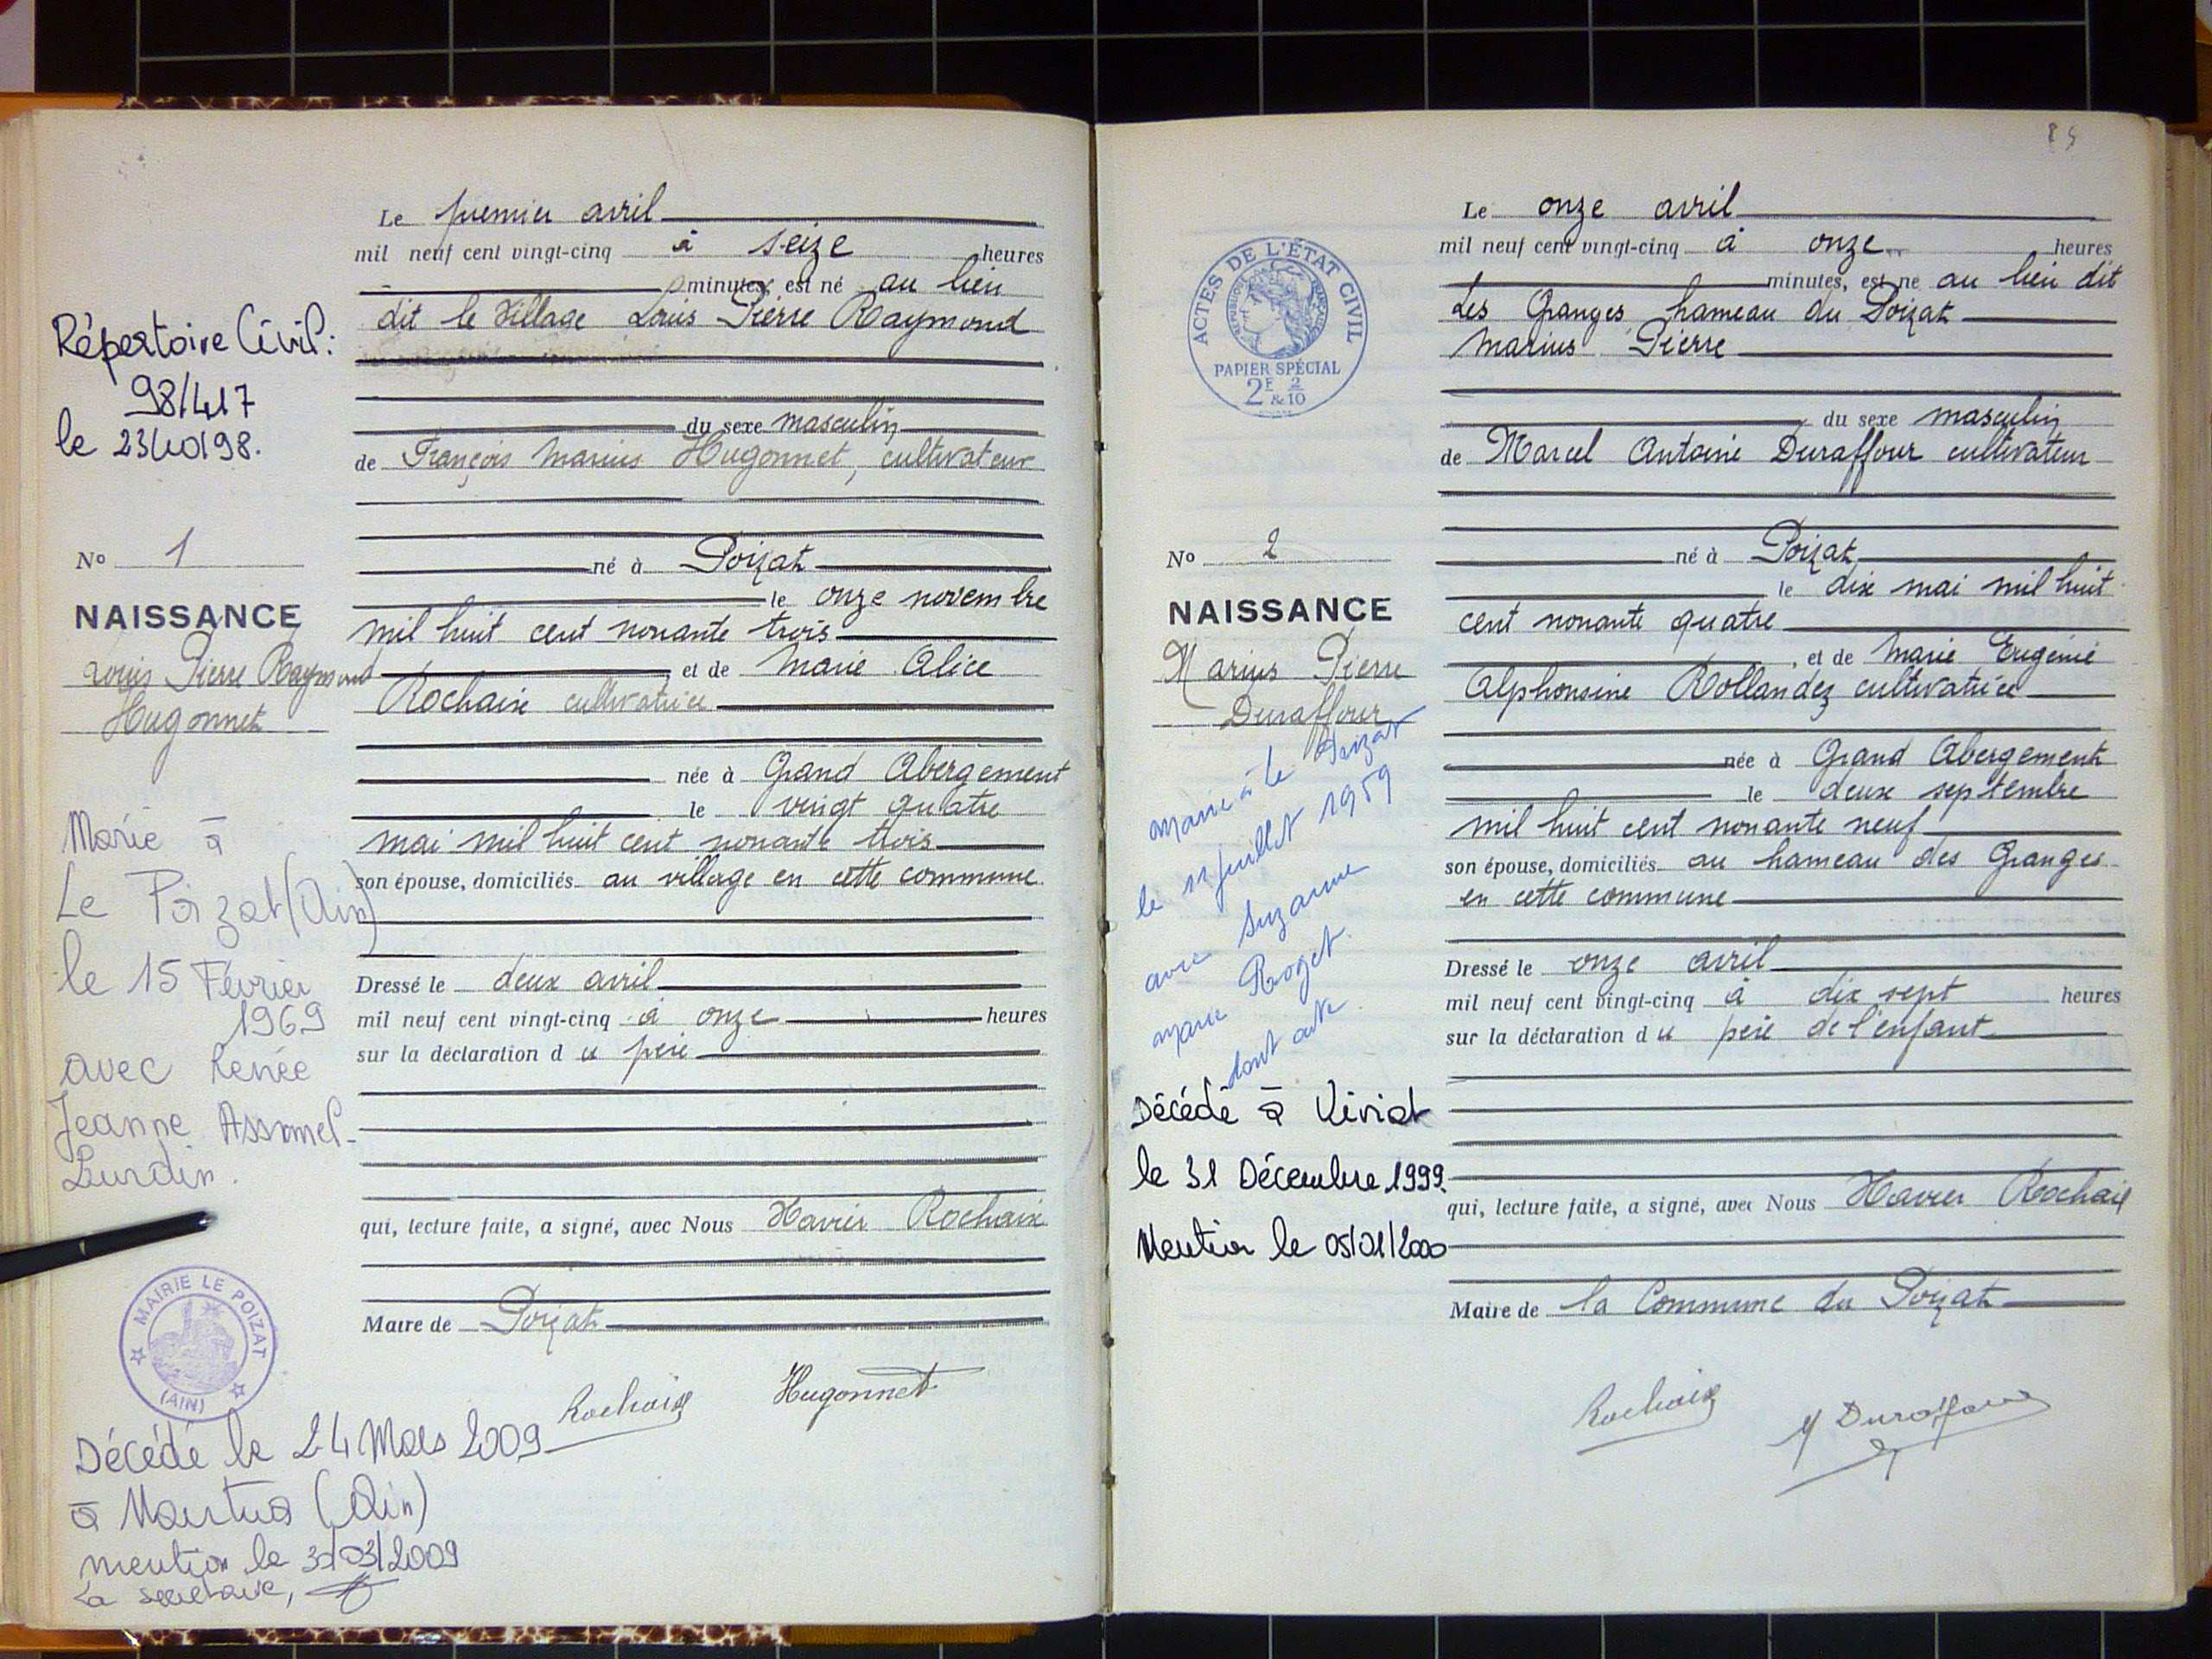 Le premier avril
mil neuf cent vingt-cinq à seize heures
minutes, est né au lieu
dit le Village Louis Pierre Raymond
du sexe masculin
de François Marius Hugonnet, cultivateur
né à Poizat
le onze novembre
mil huit cent nonante trois
et de Marie Alice
Rochaix cultivatrice
née à Grand Abergement
le vingt quatre
mai mil huit cent nonante trois
son épouse, domiciliés au village en cette commune
Dressé le deux avril
mil neuf cent vingt-cinq à onze heures
sur la déclaration du père
qui, lecture faite, a signé, avec Nous Xavier Rochaix
Maire de Poizat
Rochaix Hugonnet
Répertoire Civil:
98/417
le 23/10/98.
No 1
NAISSANCE
Louis Pierre Raymond
Hugonnet
Marié à
Le Poizat (Ain)
le 15 Février
1969
avec Renée
Jeanne
MAIRIE LE POIZAT
(AIN)
Décédé le 24 Mars 2009
à Nantua (Ain)
mention le 2009
La secrétaire,
85
Le onze avril
mil neuf cent vingt-cinq à onze heures
minutes, est né au lieu dit
Les Granges hameau du Poizat
Marius Pierre
du sexe masculin
de Marcel Antoine Duraffour cultivateur
né à Poizat
le dix mai mil huit
cent nonante quatre
, et de Marie Eugénie
Alphonsine Rollandez cultivatrice
née à Grand Abergement
le deux septembre
mil huit cent nonante neuf
son épouse, domiciliés au hameau des Granges
en cette commune
Dressé le onze avril
mil neuf cent vingt-cinq à dix sept heures
sur la déclaration du père de l'enfant
qui, lecture faite, a signé, avec Nous Xavier Rochaix
Maire de la Commune du Poizat
Rochaix M Duraffour
ACTES DE L'ÉTAT CIVIL
RÉPUBLIQUE FRANÇAISE
PAPIER SPÉCIAL
2F 2
&10
No 2
NAISSANCE
Marius Pierre
Duraffour
Marié à le Poizat
le 11 juillet 1959
avec Suzanne
Marie Roget.
dont acte.
Décédé à Viriat
le 31 Décembre 1999.
Mention le 05/01/2000